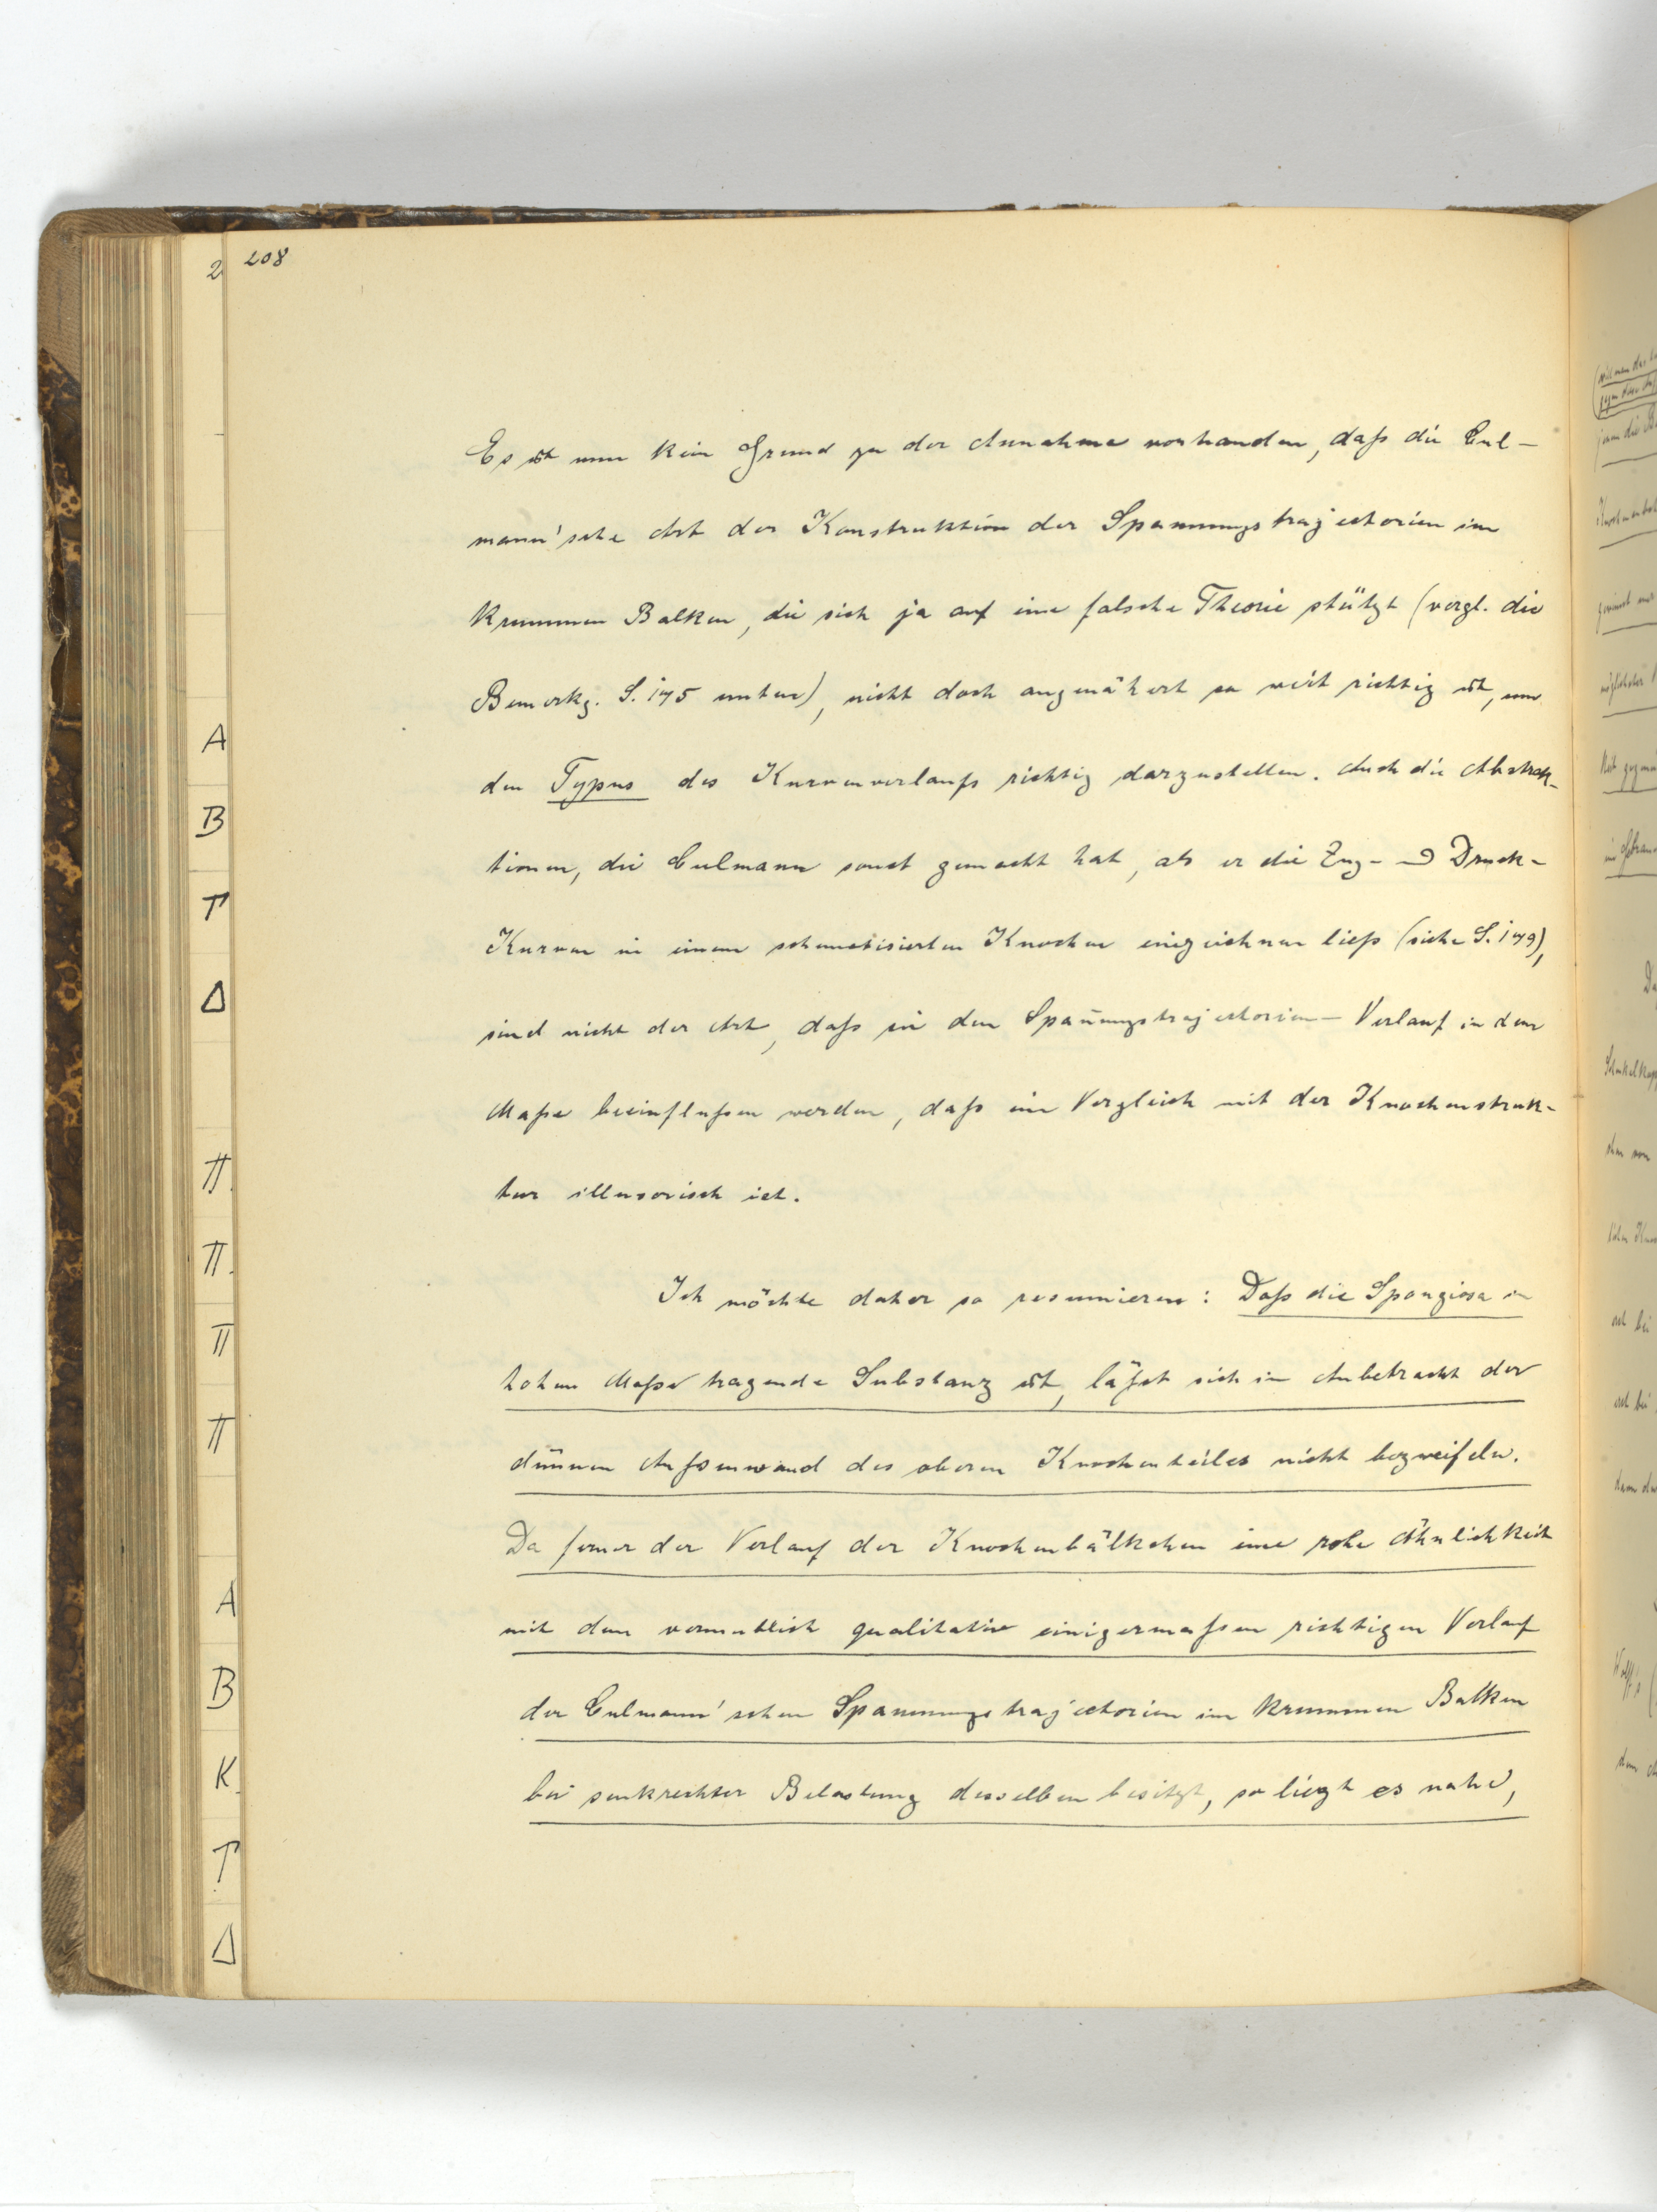 208
Es ist nun kein Grund zu der Annahme vorhanden, daß die Cul-
mann'sche Art der Konstruktion der Spannungstrajectorien im
krummen Balken, die sich ja auf eine falsche Theorie stützt (vergl. die
Bemerkg. S. 175 unten), nicht doch angenähert so weit richtig ist, um
den Typus des Kurvenverlaufs richtig darzustellen. Auch die Abstrak-
tionen, die Culmann sonst gemacht hat, als er die Zug- und Druck-
Kurven in einem schematisierten Knochen einzeichnen ließ (siehe S. 179),
sind nicht der Art, daß sie den Span̄ungstrajectorien-Verlauf in dem
Maße beeinflußen werden, daß ein Vergleich mit der Knochenstruk-
tur illusorisch ist.
Ich möchte daher so resumieren: Daß die Spongiosa in
hohem Maße tragende Substanz ist, läßt sich in Anbetracht der
dünnen Außenwand des oberen Knochenteiles nicht bezweifeln.
Da ferner der Verlauf der Knochenbälkchen eine rohe Ähnlichkeit
mit dem vermutlich qualitativ einigermaßen richtigen Verlauf
der Culmann'schen Spannungstrajectorien im krummen Balken
bei senkrechter Belastung desselben besitzt, so liegt es nahe,
2
A
B
Γ
Δ
Π.
Π.
Π
Π
A
B
K
Γ
Δ